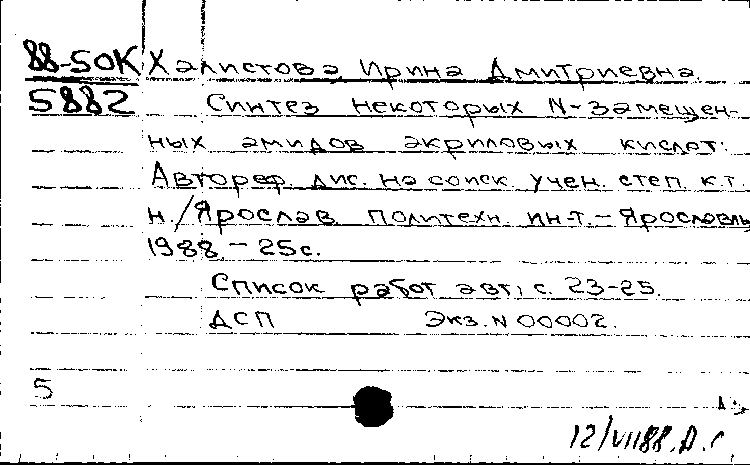 88-5ОК Халистова Ирина Дмитриевна
5882 Синтез некоторых N-замещен-
ных амидов акриловых кислот:
Автореф. дис. на соиск. учен. степ. к.т.
н./Ярослав. политехн. ин-т.-Ярославль
1988.-25с.
Список работ авт., с. 23-25.
ДСП Экз. N 00002.
5
12/VII88.